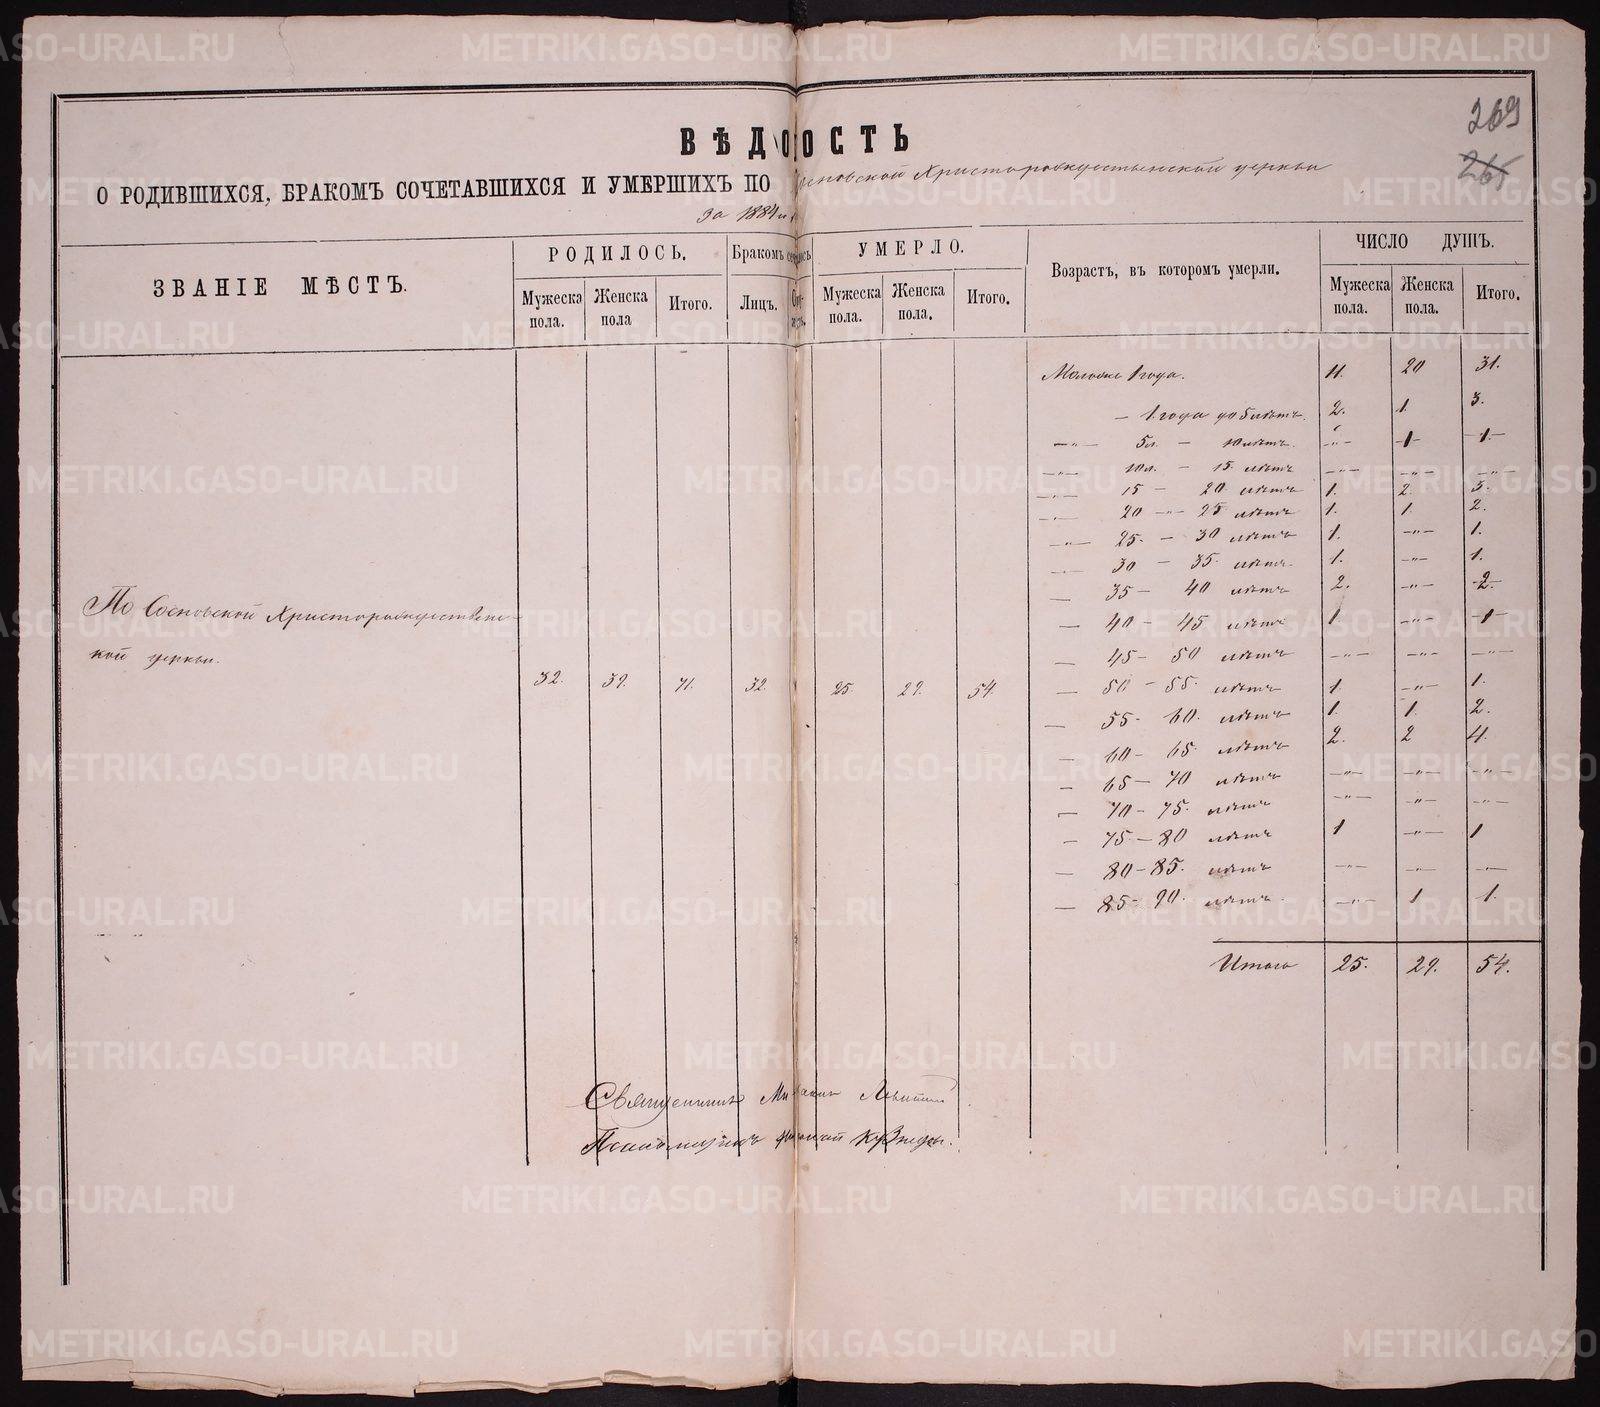 269
265
ВѢДОМОСТЬ
О РОДИВШИХСЯ, БРАКОМЪ СОЧЕТАВШИХСЯ И УМЕРШИХЪ ПО Сосновской Христорождественской церкви
за 1884
ЗВАНІЕ МѢСТЪ. РОДИЛОСЬ. Бракомъ УМЕРЛО. Возрастъ, въ которомъ умерли. ЧИСЛО ДУШЪ.
Мужеска пола. Женска пола Итого. Лицъ. Мужеска пола. Женска пола. Итого. Мужеска пола. Женска пола. Итого.
Моложе 1 года. 11. 20 31.
— 1 года до 5 лѣтъ. 2. 1. 3.
—„— 5 л. — 10 лѣтъ. —„— —1— —1—
—„— 10 л. — 15. лѣтъ —„— —„— —„—
—„— 15 — 20. лѣтъ 1. 2. 3.
—„— 20 —„— 25 лѣтъ 1. 1. 2.
—„— 25. — 30 лѣтъ 1. —„— 1.
—„— 30 — 35. лѣтъ. 1. —„— 1.
— 35 — 40 лѣтъ 2. —„— 2.
— 40 — 45 лѣтъ 1. —„— 1
— 45 — 50 лѣтъ —„— —„— —„—
— 50 — 55. лѣтъ 1. —„— 1.
— 55 — 60. лѣтъ 1. 1. 2.
— 60 — 65. лѣтъ 2. 2 4.
— 65 — 70 лѣтъ —„— —„— —„—
— 70 — 75. лѣтъ —„— —„— —„—
— 75. — 80 лѣтъ 1 —„— 1
— 80 — 85. лѣтъ —„— —„— —„—
— 85 — 90. лѣтъ. —„— 1 1.
Итого 25. 29. 54.
По Сосновской Христорождествен-
ской церкви. 32. 39. 71. 32. 25. 29. 54.
Священникъ
Псаломщикъ
METRIKI.GASO-URAL.RU